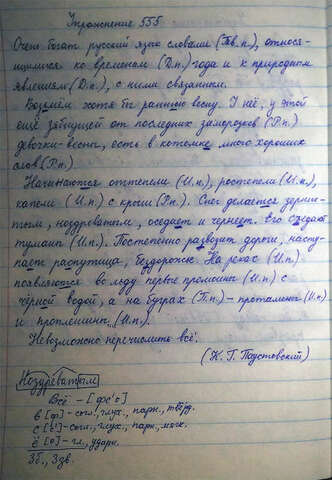 Упражнение 555
Очень богат русский язык словами (Тв.п.), относя-
щимися ко временам (Д.п.) года и к природным
явлениям (Д.п.), с ними связанным.
Возьмём хотя бы раннюю весну. У неё, у этой
ещё зябнущей от последних заморозков (Р.п.)
девочки-весны, есть в котомке много хороших
слов (Р.п.)
Начинаются оттепели (И.п.), ростепели (И.п.),
капели (И.п.) с крыш (Р.п.). Снег делается зернис-
тым, ноздреватым, оседает и чернеет. Его съедают
туманы (И.п.). Постепенно развозит дороги, насту-
пает распутица, бездорожье. На реках (П.п.)
появляются во льду первые промоины (И.п.) с
чёрной водой, а на буграх (П.п.) – проталины (И.п.)
и проплешины (И.п.).
Невозможно перечислить всё.
(К. Г. Паустовский)
Ноздреватым
Всё – [фс'о]
в [ф] – согл., глух., парн., твёрд.
с [с'] – согл., глух., парн., мягк.
ё [о] – гл., ударн.
3б., 3зв.